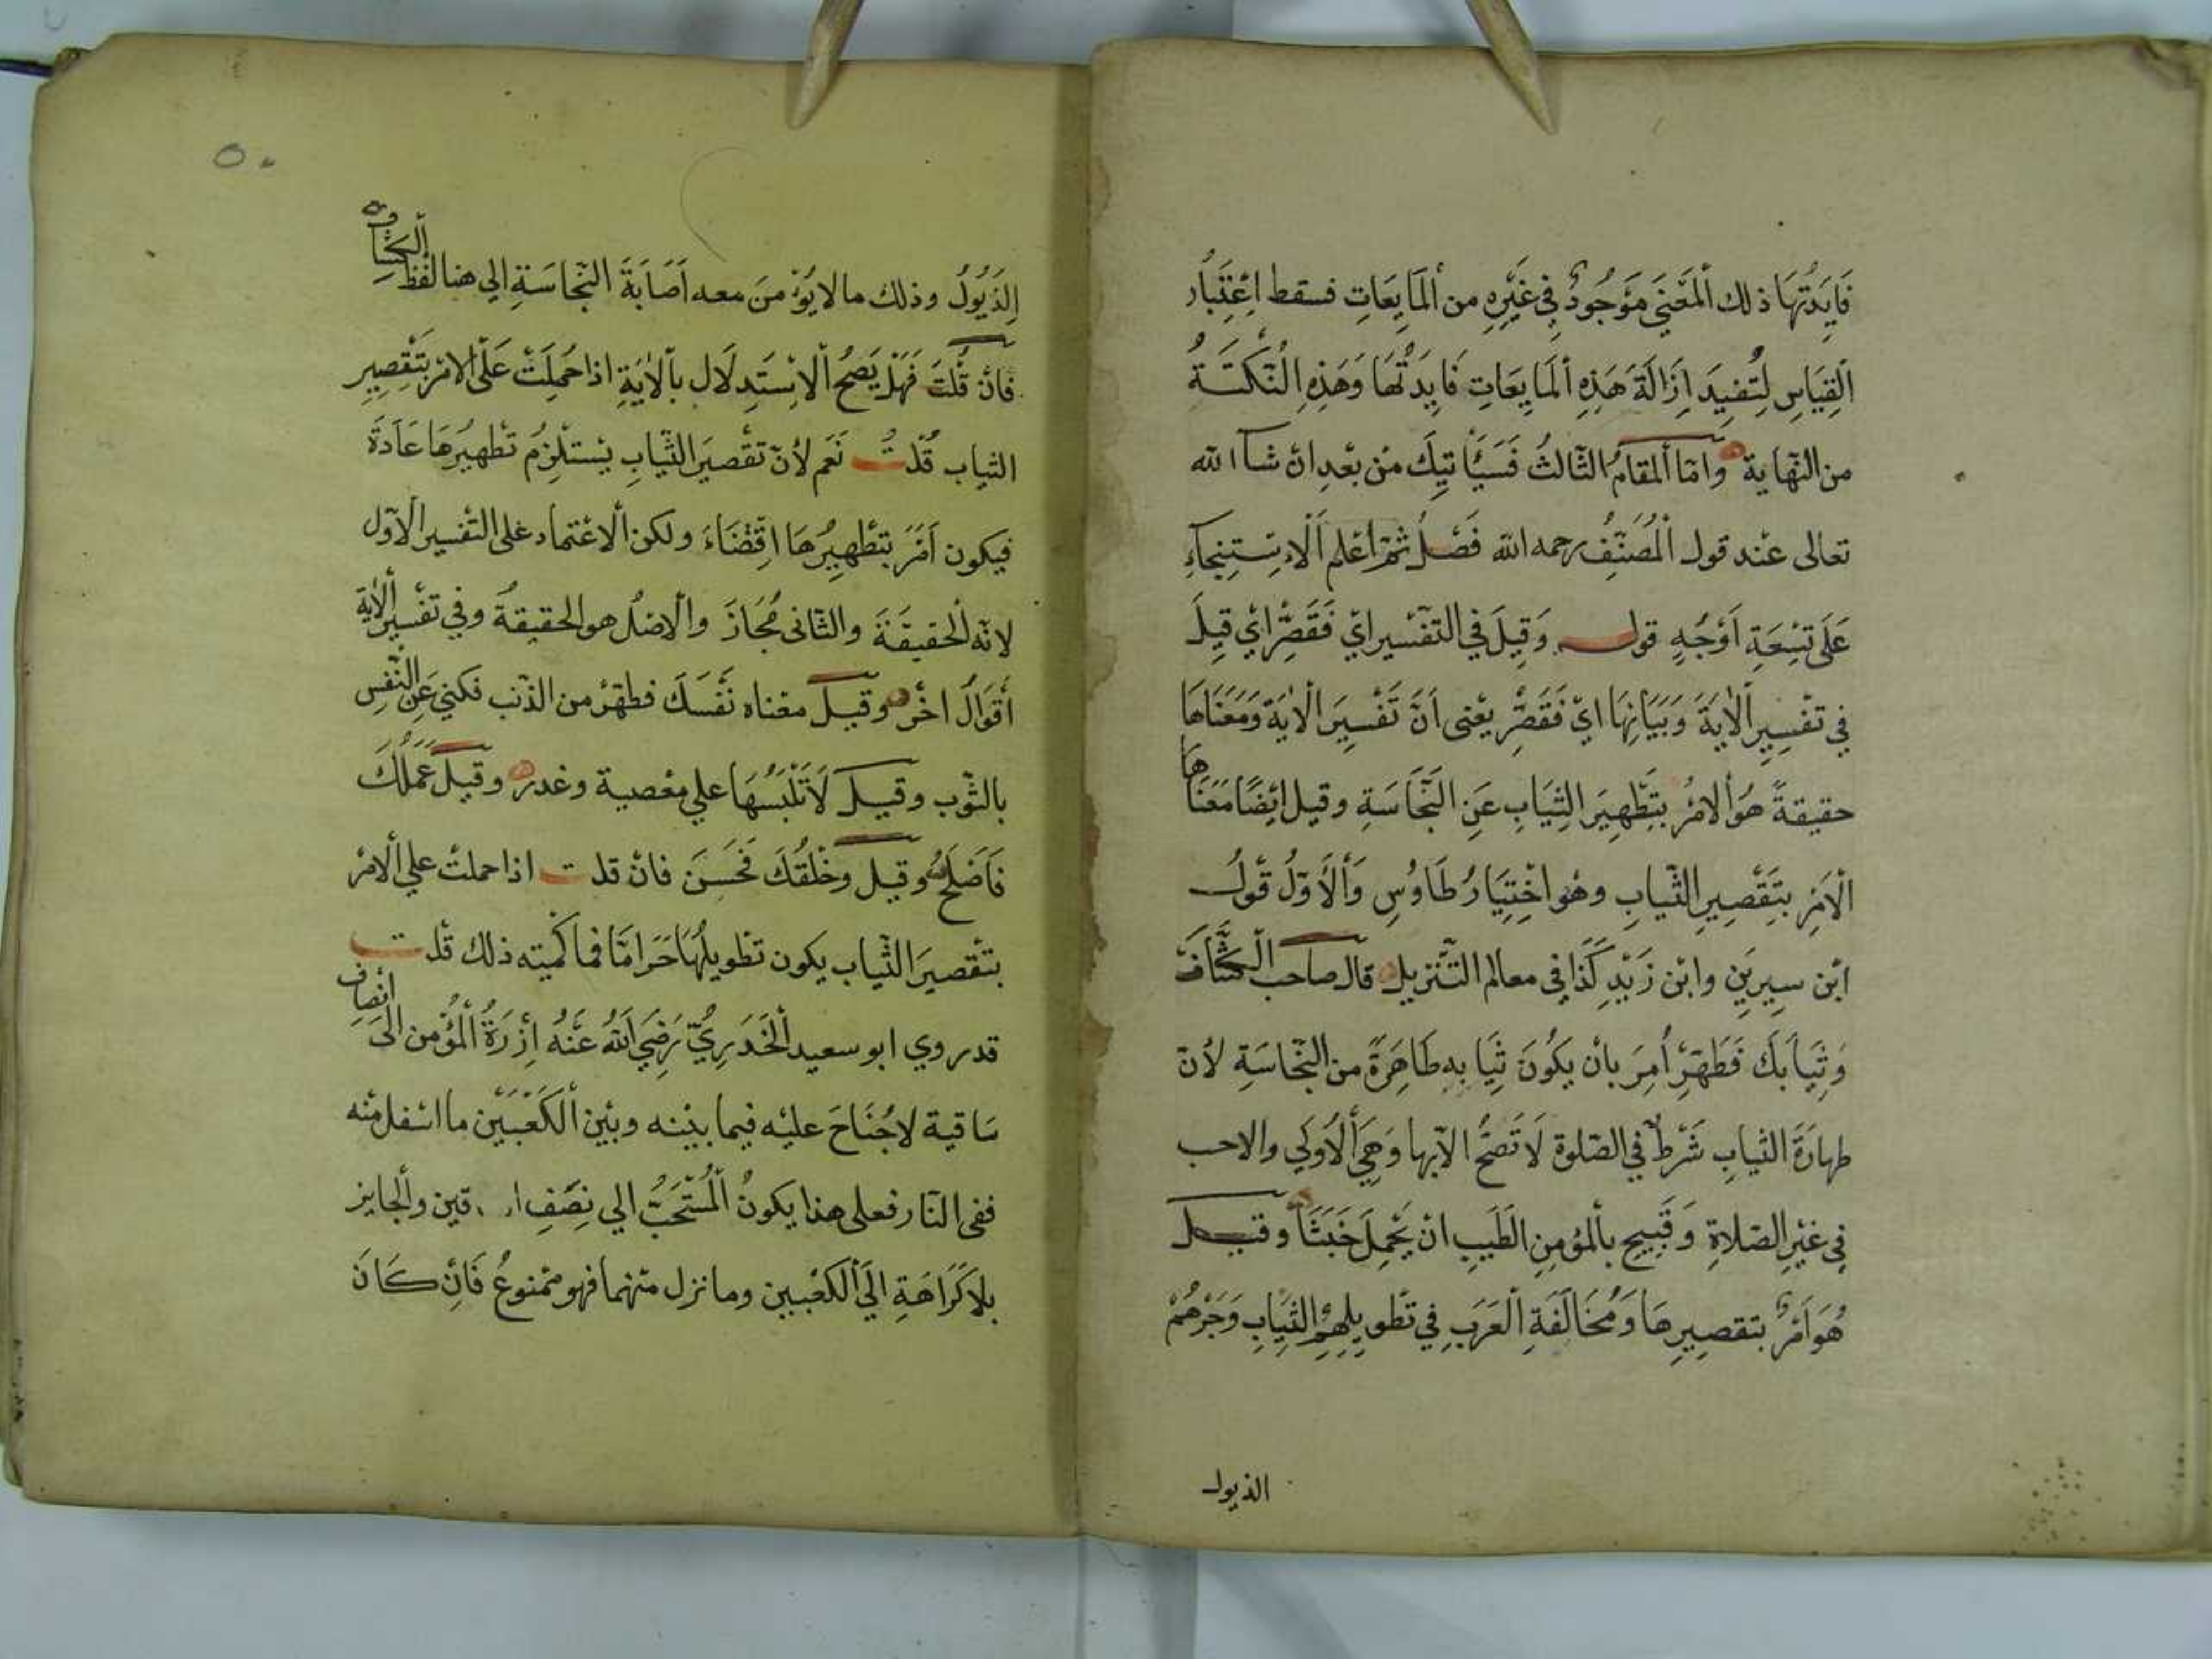 فَايَدَتُهَا ذلك اَلْمَعْنَى مَوْجُودٌ فِي غَيْرِهِ من اَلْمَايِعَاتِ فسقط اعْتِبَارُ
الْقِيَاسِ لِتُفِيدَ اِزَالَةَ هَذِهِ اَلْمَايِعَاتِ فَايِدَتُهَا وَهَذِهِ النُّكْتَةُ
من النّهاية وَامّا اَلمقامُ الثّالثُ فَسَيَأتِيكَ مِنْ بَعْدِ انْ شآ الله
تعالى عنْد قول اَلْمُصَنِّفُ رحمه الله فَصْلٌ ثمّ اعْلم اَلْاِسْتِنْجَآءِ
عَلَى تِسْعَةِ اَوْجُهٍ قوله وَقِيلَ في التفْسير ايْ فَقَصِّرْ ايْ قِيلَ
فِي تفْسِيرِ اْلآيَةَ وَبَيَانِهَا ايْ فَقَصِّرْ يعْنى اَنَّ تَفْسِيرَ اْلآيَةَ وَمَعْنَاهَا
حقيقةً هُوَ اْلامْرُ بتَطْهِيرَ الثِّيَابِ عَنِ النَّجَاسَةِ وقيل ايْضًا مَعْنَاهَا
اْلاَمْرِ بتَقْصِيرِ الثّيابِ وهُو اخْتِيَارُ طَاوُسِ وَاْلاَوّلُ قَوْلُ
ابْن سِيرِيَن وابْن زَيْدٍ كَذَا فِى معالم التّنْزيل قال صاحب الْكَشَّافَ
وَثِيَابَكَ فَطَهِّرْ اُمِرَ بانْ يَكُونَ ثِيَابِهِ طَاهِرَةً من النّجَاسَةِ لأنّ
طهارَةَ الثيابِ شَرْطٌ في الصّلوة لَا تَصحُّ الاّ بها وَهِيَ اْلاَوْلَى والاحب
فِي غيْرِ الصّلاةِ وَقَبِيح بالمُؤمِنِ الطَيِبِ انْ يَحْمِلَ خَبَثًا وقيل
هُوَ اَمْرٌ بتقصِيرِهَا وَمُخَالَفَةِ اْلعَرَبِ فِي تَطْويلِهِمْ الثِّيَابِ وَجَرْهُمْ
الذيول
٥٠
اِلذَيُولُ وذلك مالا يُوْمنَ معه اَصَابَةَ النّجَاسَةِ الى هنا لفْظ اْلكشّاف
فانْ قُلْتَ فَهَلْ يَصحُ اْلاسْتَدِلَال باْلايَةِ اذا حُمِلَتْ عَلَى الامْر بتَقْصِيرِ
الثياب قُلْتُ نَعَم لأنّ تقْصيَر الثّيابِ يسْتلْزمُ تطْهيرُهَا عَادَةً
فيكون اَمْرَ بتطْهِيرُهَا اقِتْضَاءً ولكن اْلاعْتماد على التفْسير الاَوّل
لانّه اْلحقيقَةَ والثّانى مُجَازَ واْلاصْلُ هو الحقيقةُ وفي تفْسير اْلآية
أقْوَالٌ اخَر وقيل معْناه نَفْسَكَ فطهّرْ من الذّنب فكني عَنِ النّفْسِ
بالثوْب وقيل لَا تَلْبَسُهَا على معْصية وغدر وقيل عَمَلُكَ
فَاَصْلِحْ وقيل وَخُلْقُكَ فَحَسِّنَ فانْ قلت اذا حملتْ علي اْلامْر
بتقْصيَر الثّياب يكون تطْويلُهَا حَرَامًا فما كَمّيته ذلك قُلت
قد روي ابو سعيد اْلخُدَرِيُّ رَضِيَ اَللهُ عَنْهُ اِزْرَةُ اْلمُؤْمن الَى انْصاف
ساقيهِ لا جُنَاحَ عليْه فيما بيْنه وبيْن اْلكَعْبَيْن ما اسْفل منْه
ففى النّار فعلى هذا يكونُ اْلمُسْتَحَبُّ الى نِصْفِ قين واْلجايز
بلاَ كَرَاهَةِ الَى اْلكَعْبين وما نزل منْهما فهو ممْنوعُ فَاِنْ كَانَ